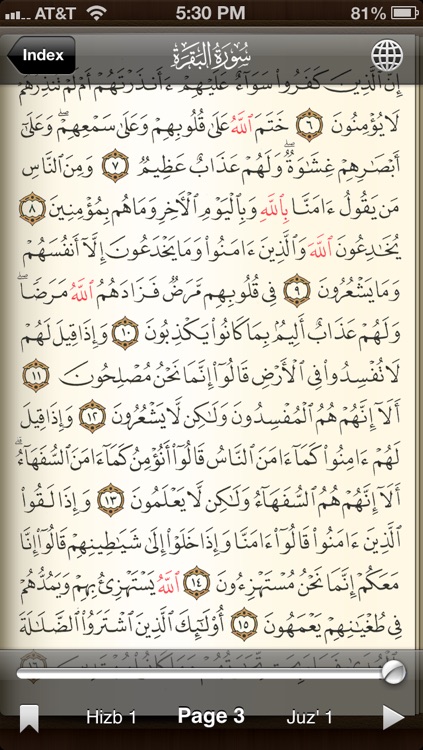 AT&T 5:30 PM 81%
Index سُورَةُ البَقَرَةِ
إِنَّ ٱلَّذِينَ كَفَرُوا۟ سَوَآءٌ عَلَيْهِمْ ءَأَنذَرْتَهُمْ أَمْ لَمْ تُنذِرْهُمْ
لَا يُؤْمِنُونَ ٦ خَتَمَ ٱللَّهُ عَلَىٰ قُلُوبِهِمْ وَعَلَىٰ سَمْعِهِمْ ۖ وَعَلَىٰٓ
أَبْصَٰرِهِمْ غِشَٰوَةٌ ۖ وَلَهُمْ عَذَابٌ عَظِيمٌ ٧ وَمِنَ ٱلنَّاسِ
مَن يَقُولُ ءَامَنَّا بِٱللَّهِ وَبِٱلْيَوْمِ ٱلْءَاخِرِ وَمَا هُم بِمُؤْمِنِينَ ٨
يُخَٰدِعُونَ ٱللَّهَ وَٱلَّذِينَ ءَامَنُوا۟ وَمَا يَخْدَعُونَ إِلَّآ أَنفُسَهُمْ
وَمَا يَشْعُرُونَ ٩ فِى قُلُوبِهِم مَّرَضٌ فَزَادَهُمُ ٱللَّهُ مَرَضًا ۖ
وَلَهُمْ عَذَابٌ أَلِيمٌۢ بِمَا كَانُوا۟ يَكْذِبُونَ ١٠ وَإِذَا قِيلَ لَهُمْ
لَا تُفْسِدُوا۟ فِى ٱلْأَرْضِ قَالُوٓا۟ إِنَّمَا نَحْنُ مُصْلِحُونَ ١١
أَلَآ إِنَّهُمْ هُمُ ٱلْمُفْسِدُونَ وَلَٰكِن لَّا يَشْعُرُونَ ١٢ وَإِذَا قِيلَ
لَهُمْ ءَامِنُوا۟ كَمَآ ءَامَنَ ٱلنَّاسُ قَالُوٓا۟ أَنُؤْمِنُ كَمَآ ءَامَنَ ٱلسُّفَهَآءُ ۗ
أَلَآ إِنَّهُمْ هُمُ ٱلسُّفَهَآءُ وَلَٰكِن لَّا يَعْلَمُونَ ١٣ وَإِذَا لَقُوا۟
ٱلَّذِينَ ءَامَنُوا۟ قَالُوٓا۟ ءَامَنَّا وَإِذَا خَلَوْا۟ إِلَىٰ شَيَٰطِينِهِمْ قَالُوٓا۟ إِنَّا
مَعَكُمْ إِنَّمَا نَحْنُ مُسْتَهْزِءُونَ ١٤ ٱللَّهُ يَسْتَهْزِئُ بِهِمْ وَيَمُدُّهُمْ
فِى طُغْيَٰنِهِمْ يَعْمَهُونَ ١٥ أُو۟لَٰٓئِكَ ٱلَّذِينَ ٱشْتَرَوُا۟ ٱلضَّلَٰلَةَ
Hizb 1 Page 3 Juz' 1